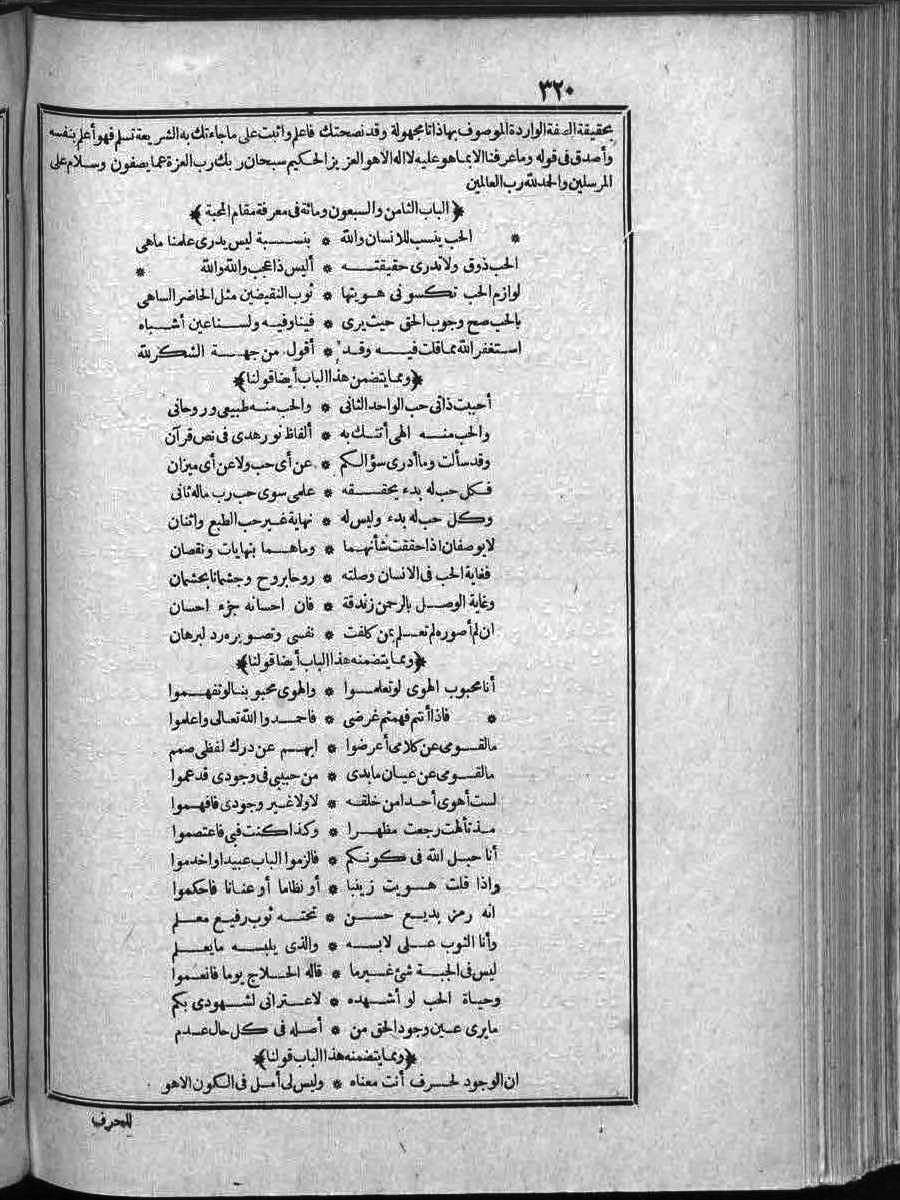 ٣٢٠
بحقيقة الصفة الواردة الموصوف بها ذاتا مجهولة وقد نصحتك فاعلم واثبت على ما جاءتك به الشريعة تسلم فهو أعلم بنفسه
وأصدق فى قوله وما عرفنا الا بما هو عليه لا اله الا هو العزيز الحكيم سبحان ربك رب العزة عما يصفون وسلام على
المرسلين والحد لله رب العالمين
﴿الباب الثامن والسبعون ومائة فى معرفة مقام المحبة﴾
* الحب ينسب للانسان والله * بنسبة ليس يدرى علمنا ماهى
الحب ذوق ولا تدرى حقيقته * أليس ذا عجب والله والله *
لوازم الحب تكسونى هويتها * ثوب النقيضين مثل الحاضر الساهى
بالحب صح وجوب الحق حيث يرى * فينا وفيه ولسنا عين أشباه
استغفر الله مما قلت فيه وقد * أقول من جهة الشكر لله
﴿ومما يتضمن هذا الباب أيضا قولنا﴾
أحببت ذاتى حب الواحد الثانى * والحب منه طبيعى وروحانى
والحب منه الهى أتتك به * ألفاظ نور هدى فى نص قرآن
وقد سألت وما أدرى سؤالكم * عن أى حب ولا عن أى ميزان
فكل حب له بدء يحققه * علمى سوى حب رب ماله ثانى
وكل حب له بدء وليس له * نهاية غير حب الطبع واثنان
لا يوصفان اذا حققت شأنهما * وماهما بنهايات ونقصان
فغاية الحب فى الانسان وصلته * روحا بروح وجثمانا بجثمان
وغاية الوصل بالرحمن زندقة * فان احسانه جزء احسان
ان لم أصوره لم تعلم بمن كلفت * نفسى وتصويره رد لبرهان
﴿ومما يتضمنه هذا الباب أيضا قولنا﴾
أنا محبوب الهوى لو تعلموا * والهوى محبوبنا لو تفهموا
* فاذا أنتم فهمتم غرضى * فاحمدوا الله تعالى واعلموا
مالقومى عن كلامى أعرضوا * ابهم عن درك لفظى صمم
مالقومى عن عيان مابدى * من حبيبى فى وجودى قد عموا
لست أهوى أحدا من خلقه * لا ولا غير وجودى فافهموا
مذ تألهت رجعت مظهرا * وكذا كنت فبى فاعتصموا
أنا حبل الله فى كونكم * فالزموا الباب عبيدا واخدموا
واذا قلت هويت زينبا * أو نظاما أو عنانا فاحكموا
انه رمز بديع حسن * تحته ثوب رفيع معلم
وأنا الثوب على لابسه * والذى يلبسه ما يعلم
ليس فى الجبة شئ غير ما * قاله الحلاج يوما فانعموا
وحياة الحب لو أشهده * لاعترانى لشهودى بكم
ما يرى عين وجود الحق من * أصله فى كل حال عدم
﴿ومما يتضمنه هذا الباب قولنا﴾
ان الوجود لحرف أنت معناه * وليس لى أمل فى الكون الا هو
للحرف